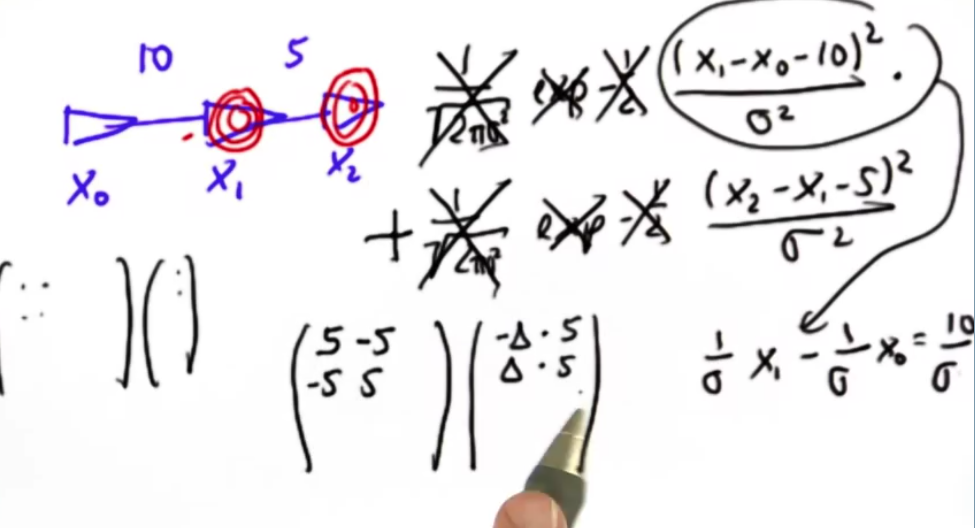 10 5
X₀ X₁ X₂
1/√(2πσ²) exp -1/2 (x₁-x₀-10)²/σ² ·
+ 1/√(2πσ²) exp -1/2 (x₂-x₁-5)²/σ²
5 -5
-5 5
-Δ · 5
Δ · 5
1/σ x₁ - 1/σ x₀ = 10/σ